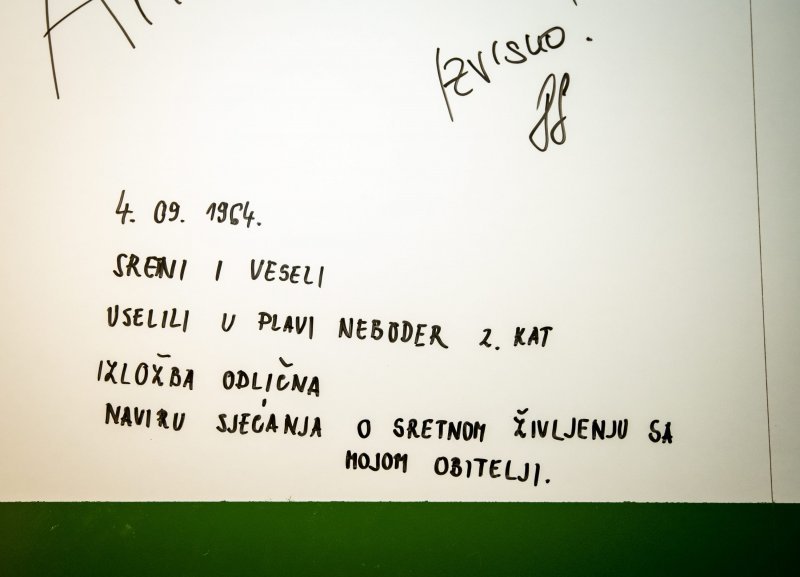 IZVISKO.
4. 09. 1964.
SRETNI I VESELI
USELILI U PLAVI NEBODER 2. KAT
IZLOŽBA ODLIČNA
NAVIRU SJEĆANJA O SRETNOM ŽIVLJENJU SA
MOJOM OBITELJI.